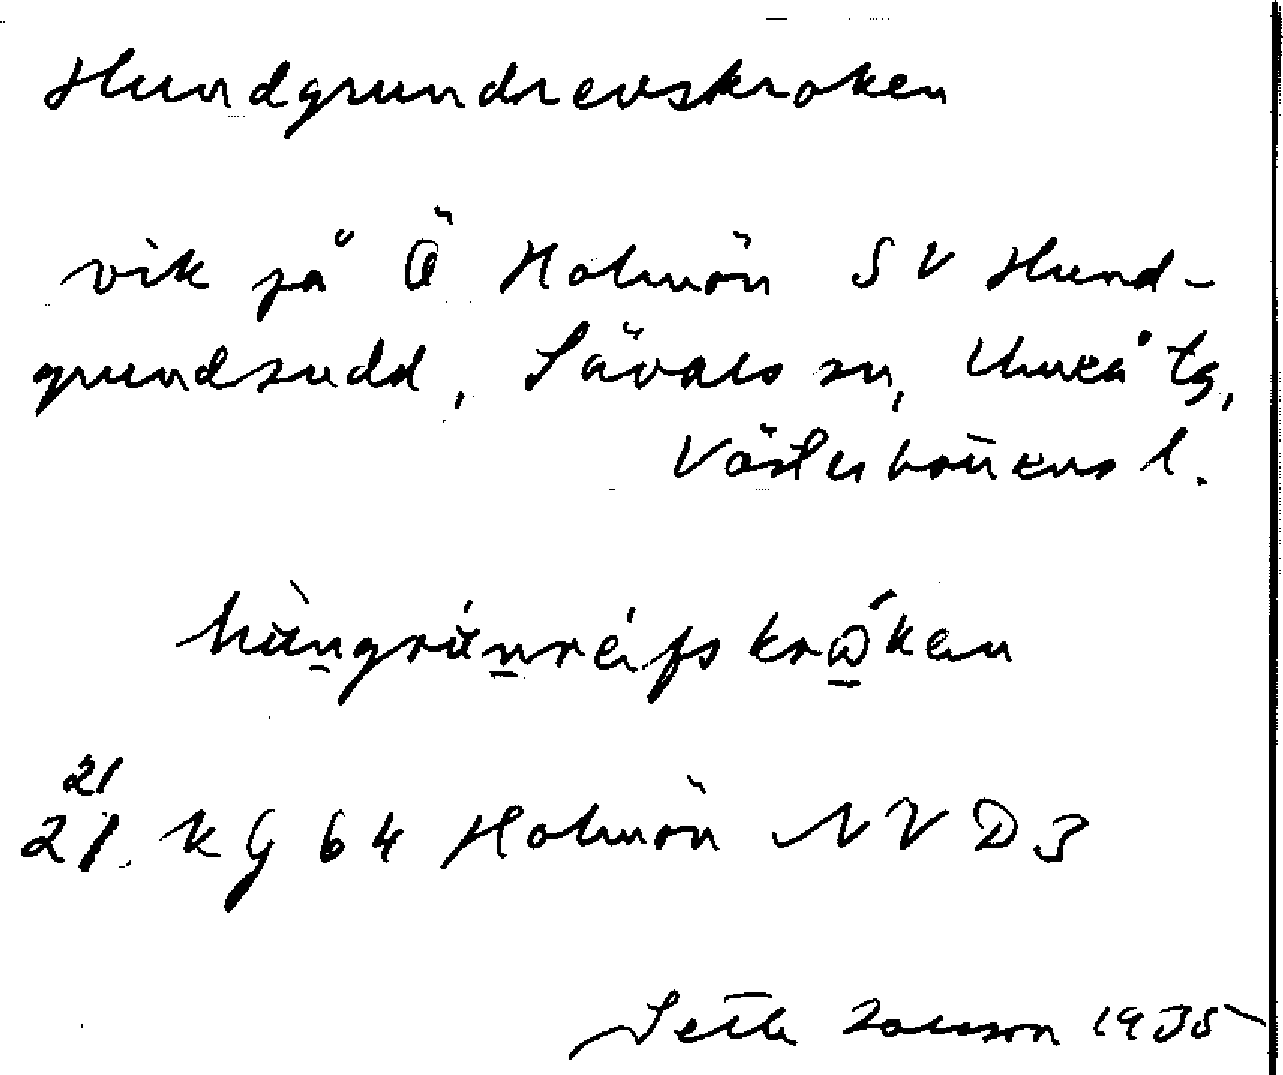 Hundgrundrevskroken
vik på Ö Holmön SV Hund-
grundsudd, Sävars sn, Umeå tg,
Västerbottens l.
hùngrúnréifskrǻken
21
21. KG 64 Holmön NV D3
Sethe Jonsson 1935